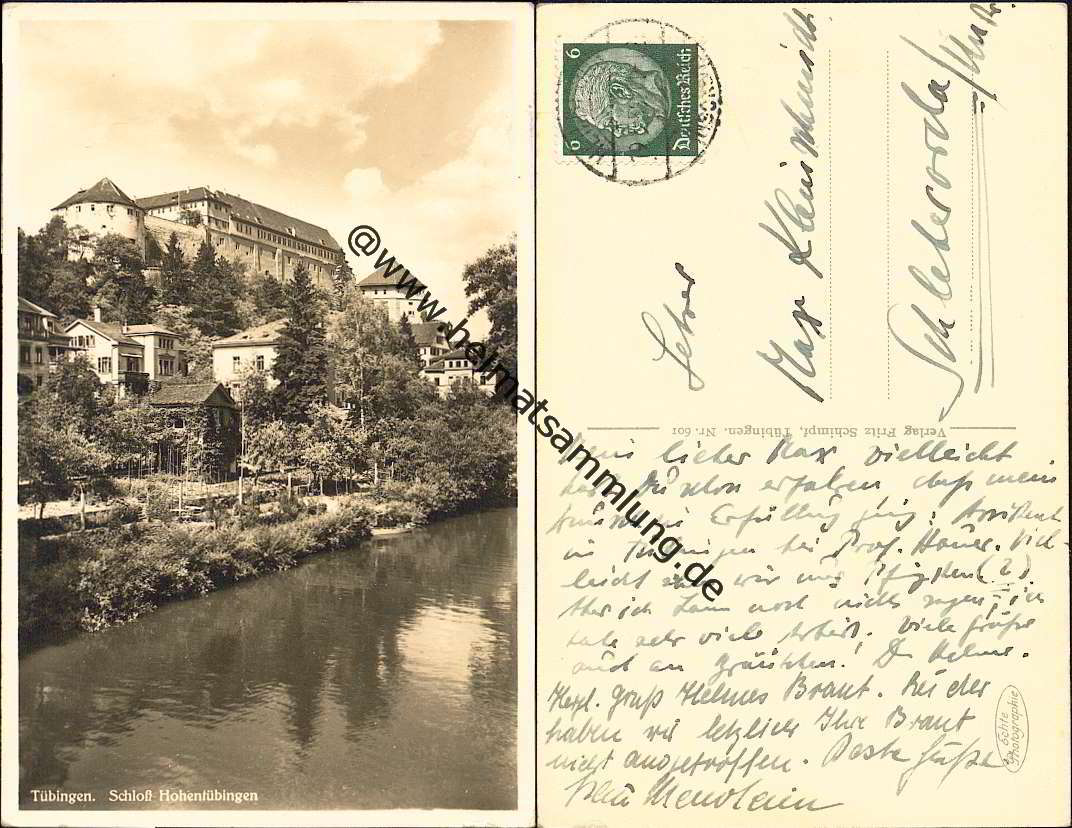 Tübingen. Schloß Hohentübingen
@www.heimatsammlung.de
6 Deutsches Reich 6
Lehrer
Max Kleinschmidt
Verlag Fritz Schimpf, Tübingen. Nr. 601
lieber Max vielleicht
Du schon erfahren daß mein
in Erfüllung ging. Assistent
in Tübingen bei Prof. Hauer. Viel-
leicht wir uns Pfingsten (?).
Aber ich kann noch nichts sagen, ich
habe sehr viele Arbeit. Viele Grüße
auch an Dein Helme.
Herzl. Gruß Helmes Braut. Bei der
haben wir letzlich Ihre Braut
nicht angetroffen. Beste Grüße
Echte
Photographie